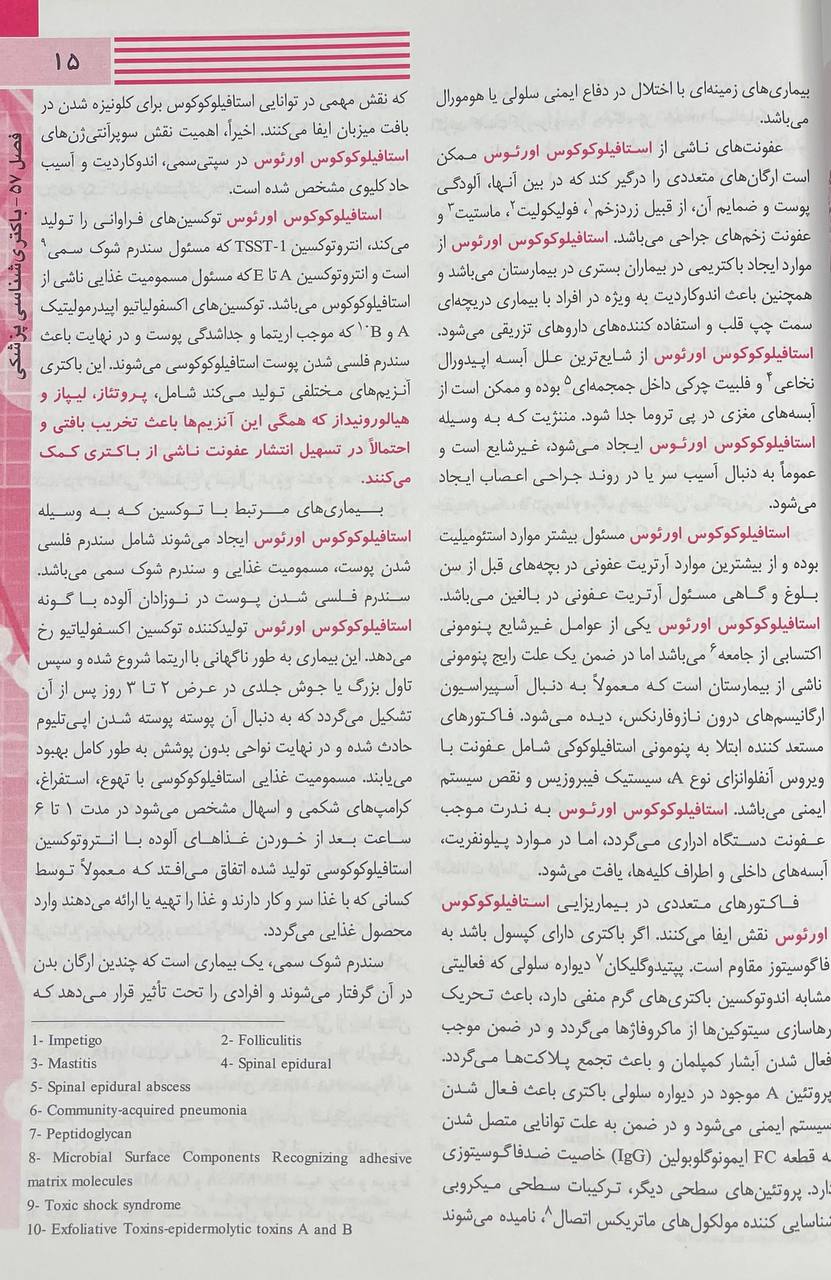 ۱۵
فصل ۵۷ - باکتری‌شناسی پزشکی
بیماری‌های زمینه‌ای با اختلال در دفاع ایمنی سلولی یا هومورال
می‌باشد.
عفونت‌های ناشی از استافیلوکوکوس اورئوس ممکن
است ارگان‌های متعددی را درگیر کند که در بین آنها، آلودگی
پوست و ضمایم آن، از قبیل زردزخم۱، فولیکولیت۲، ماستیت۳ و
عفونت زخم‌های جراحی می‌باشد. استافیلوکوکوس اورئوس از
موارد ایجاد باکتریمی در بیماران بستری در بیمارستان می‌باشد و
همچنین باعث اندوکاردیت به ویژه در افراد با بیماری دریچه‌ای
سمت چپ قلب و استفاده کننده‌های داروهای تزریقی می‌شود.
استافیلوکوکوس اورئوس از شایع‌ترین علل آبسه اپیدورال
نخاعی۴ و فلبیت چرکی داخل جمجمه‌ای۵ بوده و ممکن است از
آبسه‌های مغزی در پی تروما جدا شود. مننژیت که به وسیله
استافیلوکوکوس اورئوس ایجاد می‌شود، غیرشایع است و
عموماً به دنبال آسیب سر یا در روند جراحی اعصاب ایجاد
می‌شود.
استافیلوکوکوس اورئوس مسئول بیشتر موارد استئومیلیت
بوده و از بیشترین موارد آرتریت عفونی در بچه‌های قبل از سن
بلوغ و گاهی مسئول آرتریت عفونی در بالغین می‌باشد.
استافیلوکوکوس اورئوس یکی از عوامل غیرشایع پنومونی
اکتسابی از جامعه۶ می‌باشد اما در ضمن یک علت رایج پنومونی
ناشی از بیمارستان است که معمولاً به دنبال آسپیراسیون
ارگانیسم‌های درون نازوفارنکس، دیده می‌شود. فاکتورهای
مستعد کننده ابتلا به پنومونی استافیلوکوکی شامل عفونت با
ویروس آنفلوانزای نوع A، سیستیک فیبروزیس و نقص سیستم
ایمنی می‌باشد. استافیلوکوکوس اورئوس به ندرت موجب
عفونت دستگاه ادراری می‌گردد، اما در موارد پیلونفریت،
آبسه‌های داخلی و اطراف کلیه‌ها، یافت می‌شود.
فاکتورهای متعددی در بیماریزایی استافیلوکوکوس
اورئوس نقش ایفا می‌کنند. اگر باکتری دارای کپسول باشد به
فاگوسیتوز مقاوم است. پپتیدوگلیکان۷ دیواره سلولی که فعالیتی
مشابه اندوتوکسین باکتری‌های گرم منفی دارد، باعث تحریک
رهاسازی سیتوکین‌ها از ماکروفاژها می‌گردد و در ضمن موجب
فعال شدن آبشار کمپلمان و باعث تجمع پلاکت‌ها می‌گردد.
پروتئین A موجود در دیواره سلولی باکتری باعث فعال شدن
سیستم ایمنی می‌شود و در ضمن به علت توانایی متصل شدن
به قطعه FC ایمونوگلوبولین (IgG) خاصیت ضدفاگوسیتوزی
دارد. پروتئین‌های سطحی دیگر، ترکیبات سطحی میکروبی
شناسایی کننده مولکول‌های ماتریکس اتصال۸، نامیده می‌شوند
که نقش مهمی در توانایی استافیلوکوکوس برای کلونیزه شدن در
بافت میزبان ایفا می‌کنند. اخیراً، اهمیت نقش سوپرآنتی‌ژن‌های
استافیلوکوکوس اورئوس در سپتی‌سمی، اندوکاردیت و آسیب
حاد کلیوی مشخص شده است.
استافیلوکوکوس اورئوس توکسین‌های فراوانی را تولید
می‌کند، انتروتوکسین TSST-1 که مسئول سندرم شوک سمی۹
است و انتروتوکسین A تا E که مسئول مسمومیت غذایی ناشی از
استافیلوکوکوس می‌باشد. توکسین‌های اکسفولیاتیو اپیدرمولیتیک
A و B۱۰ که موجب اریتما و جداشدگی پوست و در نهایت باعث
سندرم فلسی شدن پوست استافیلوکوکوسی می‌شوند. این باکتری
آنزیم‌های مختلفی تولید می‌کند شامل، پروتئاز، لیپاز و
هیالورونیداز که همگی این آنزیم‌ها باعث تخریب بافتی و
احتمالاً در تسهیل انتشار عفونت ناشی از باکتری کمک
می‌کنند.
بیماری‌های مرتبط با توکسین که به وسیله
استافیلوکوکوس اورئوس ایجاد می‌شوند شامل سندرم فلسی
شدن پوست، مسمومیت غذایی و سندرم شوک سمی می‌باشد.
سندرم فلسی شدن پوست در نوزادان آلوده با گونه
استافیلوکوکوس اورئوس تولیدکننده توکسین اکسفولیاتیو رخ
می‌دهد. این بیماری به طور ناگهانی با اریتما شروع شده و سپس
تاول بزرگ یا جوش جلدی در عرض ۲ تا ۳ روز پس از آن
تشکیل می‌گردد که به دنبال آن پوسته پوسته شدن اپی‌تلیوم
حادث شده و در نهایت نواحی بدون پوشش به طور کامل بهبود
می‌یابند. مسمومیت غذایی استافیلوکوکوسی با تهوع، استفراغ،
کرامپ‌های شکمی و اسهال مشخص می‌شود در مدت ۱ تا ۶
ساعت بعد از خوردن غذاهای آلوده با انتروتوکسین
استافیلوکوکوسی تولید شده اتفاق می‌افتد که معمولاً توسط
کسانی که با غذا سر و کار دارند و غذا را تهیه یا ارائه می‌دهند وارد
محصول غذایی می‌گردد.
سندرم شوک سمی، یک بیماری است که چندین ارگان بدن
در آن گرفتار می‌شوند و افرادی را تحت تأثیر قرار می‌دهد که
1- Impetigo 2- Folliculitis
3- Mastitis 4- Spinal epidural
5- Spinal epidural abscess
6- Community-acquired pneumonia
7- Peptidoglycan
8- Microbial Surface Components Recognizing adhesive
matrix molecules
9- Toxic shock syndrome
10- Exfoliative Toxins-epidermolytic toxins A and B